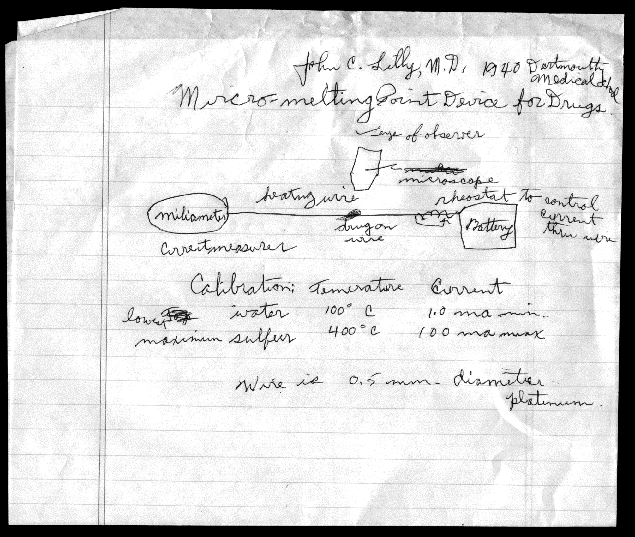 John C. Lilly, M.D. 1940 Dartmouth
Medical School
Micro-melting Point Device for Drugs.
eye of observer
microscope
heating wire
rheostat to control
current
thru wire
miliameter
drug on
wire
Battery
Current measurer
Calibration: Temerature Current
lowest water 100° C 1.0 ma min.
maximum sulfur 400° C 100 ma max
Wire is 0.5 mm- diameter
platinum.